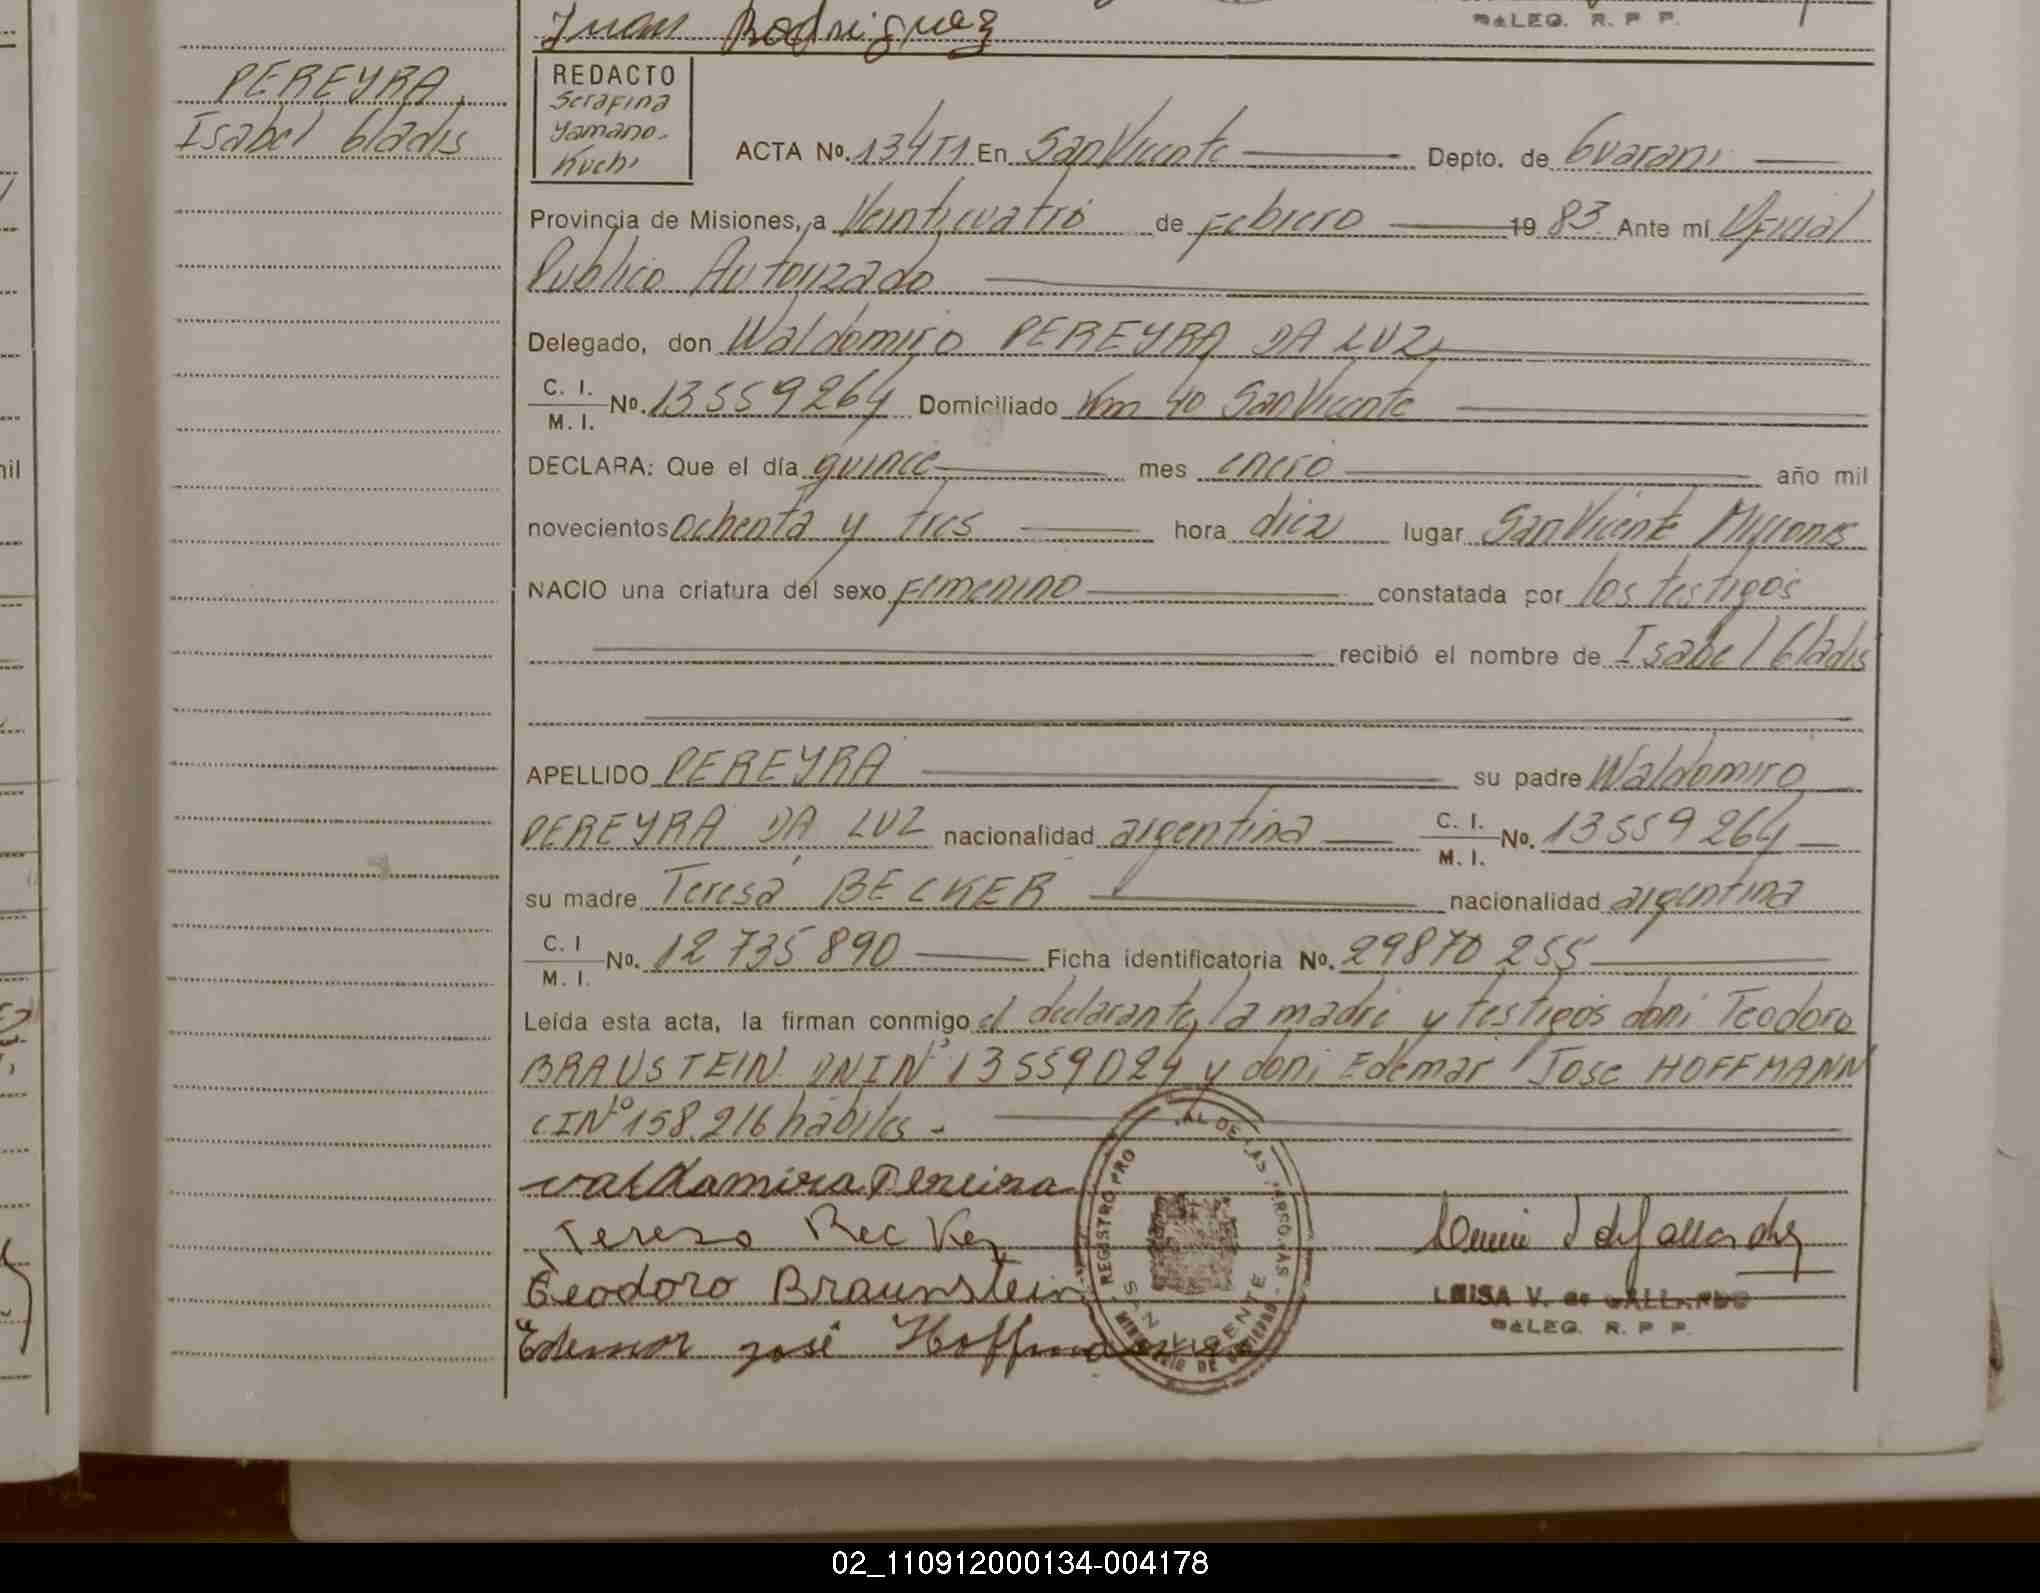 Juan Rodriguez
DELEG. R. P. P.
PEREYRA
Isabel Gladis
REDACTO
Serafina
Yamano-
Kuchi
ACTA No. 134T1 En San Vicente Depto. de Guarani
Provincia de Misiones, a Veinticuatro de Febrero 1983. Ante mí Oficial
Publico Autorizado
Delegado, don Waldomiro PEREYRA DA LUZ
C. I.
M. I. No. 13559264 Domiciliado Km 40 San Vicente
DECLARA: Que el día quince mes enero año mil
novecientos ochenta y tres hora diez lugar San Vicente Misiones
NACIO una criatura del sexo Femenino constatada por los testigos
recibió el nombre de Isabel Gladis
APELLIDO PEREYRA su padre Waldomiro
PEREYRA DA LUZ nacionalidad argentina C. I. M. I. No. 13559264
su madre Teresa BECKER nacionalidad argentina
C. I
M. I. No. 12735890 Ficha identificatoria No. 29870255
Leída esta acta, la firman conmigo el declarante, la madre y testigos don: Teodoro
BRAUSTEIN DNI N° 13559024 y don: Edemar Jose HOFFMANN
CI N° 158.216 hábiles -
valdamira Pereira
Teresa Becker
Teodoro Braunstein
Edemar josé Hoffmann
REGISTRO PRO AL DE LAS PERSONAS
SAN VICENTE
MINISTERIO DE GOBIERNO
LUISA V. de GALLARDO
DELEG. R. P P.
nil
02_110912000134-004178